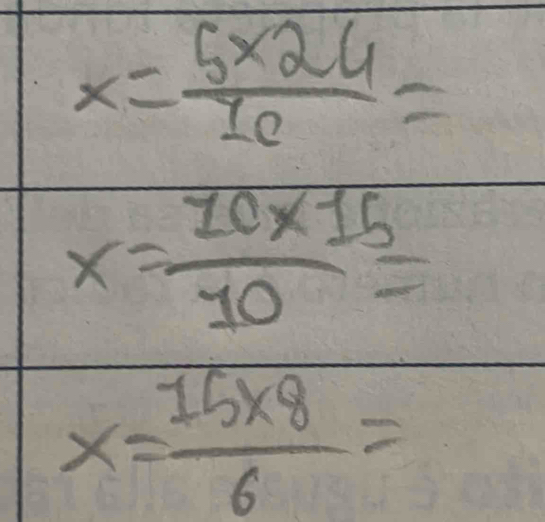 x = 5×24/10 =
x = 10×15/10 =
x = 15×8/6 =